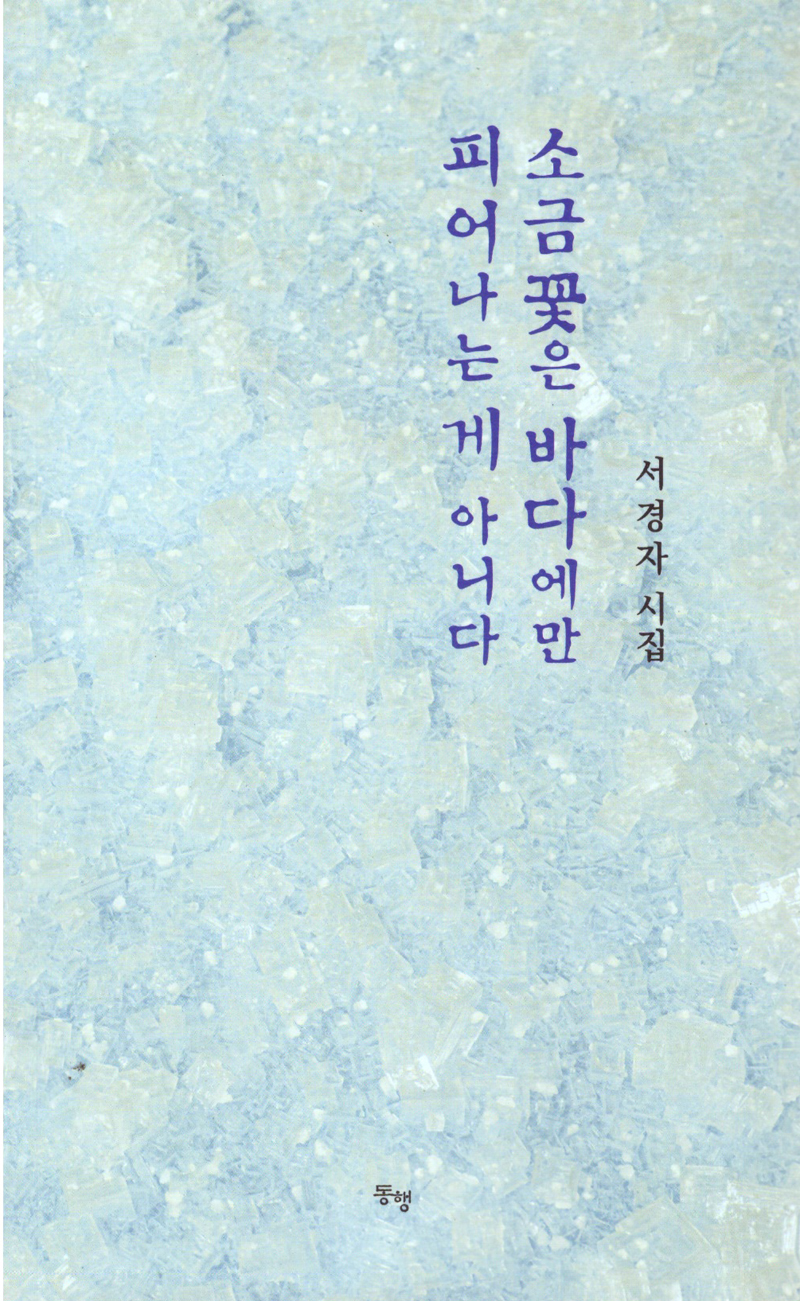 서경자 시집
소금꽃은 바다에만
피어나는 게 아니다
동행